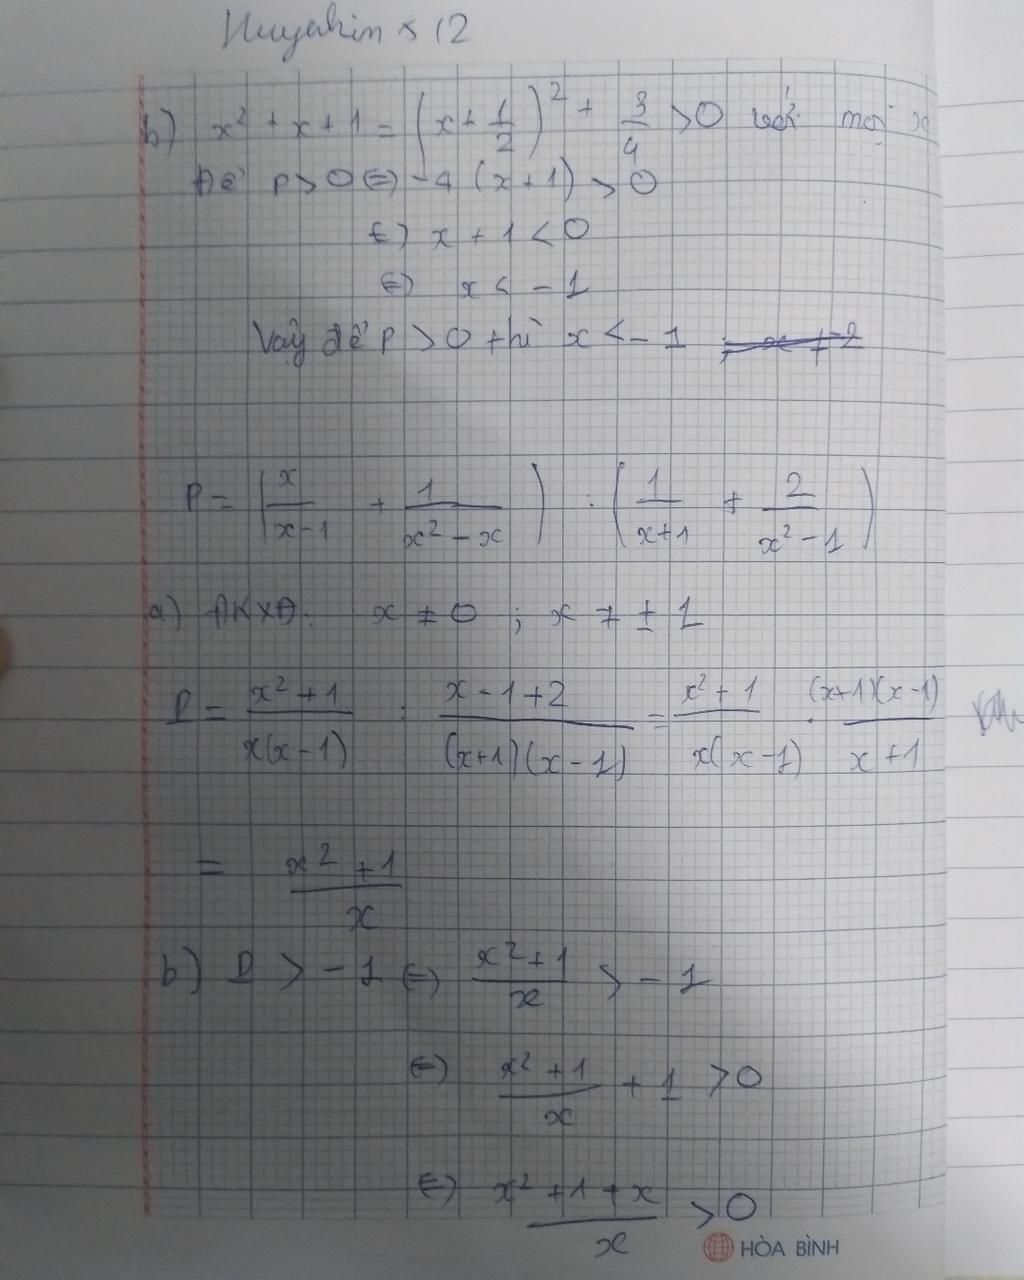 b) x² + x + 1 = (x + 1/2)² + 3/4 > 0 với mọi x
Để P > 0 <=> -4 (x+1) > 0
<=> x + 1 < 0
<=> x < -1
Vậy để P > 0 thì x < -1
P = (x/(x-1) + 1/(x² - x)) : (1/(x+1) + 2/(x² - 1))
a) ĐKXĐ: x ≠ 0 ; x ≠ ± 1
P = (x² + 1)/(x(x-1)) : (x - 1 + 2)/((x+1)(x-1)) = (x² + 1)/(x(x-1)) . ((x+1)(x-1))/(x+1)
= (x² + 1)/x
b) P > -1 <=> (x² + 1)/x > -1
<=> (x² + 1)/x + 1 > 0
<=> (x² + 1 + x)/x > 0
HÒA BÌNH